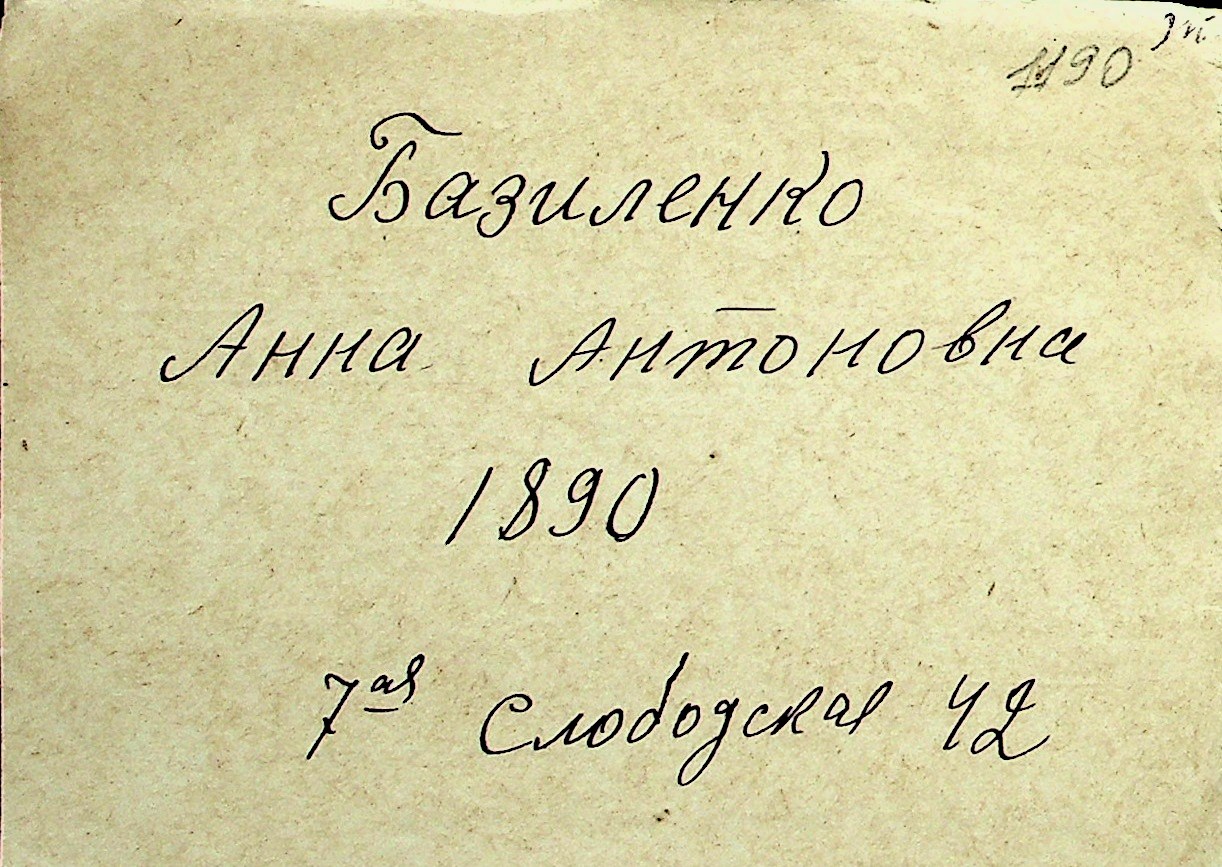 1190
Базиленко
Анна Антоновна
1890
7ая Слободская 42